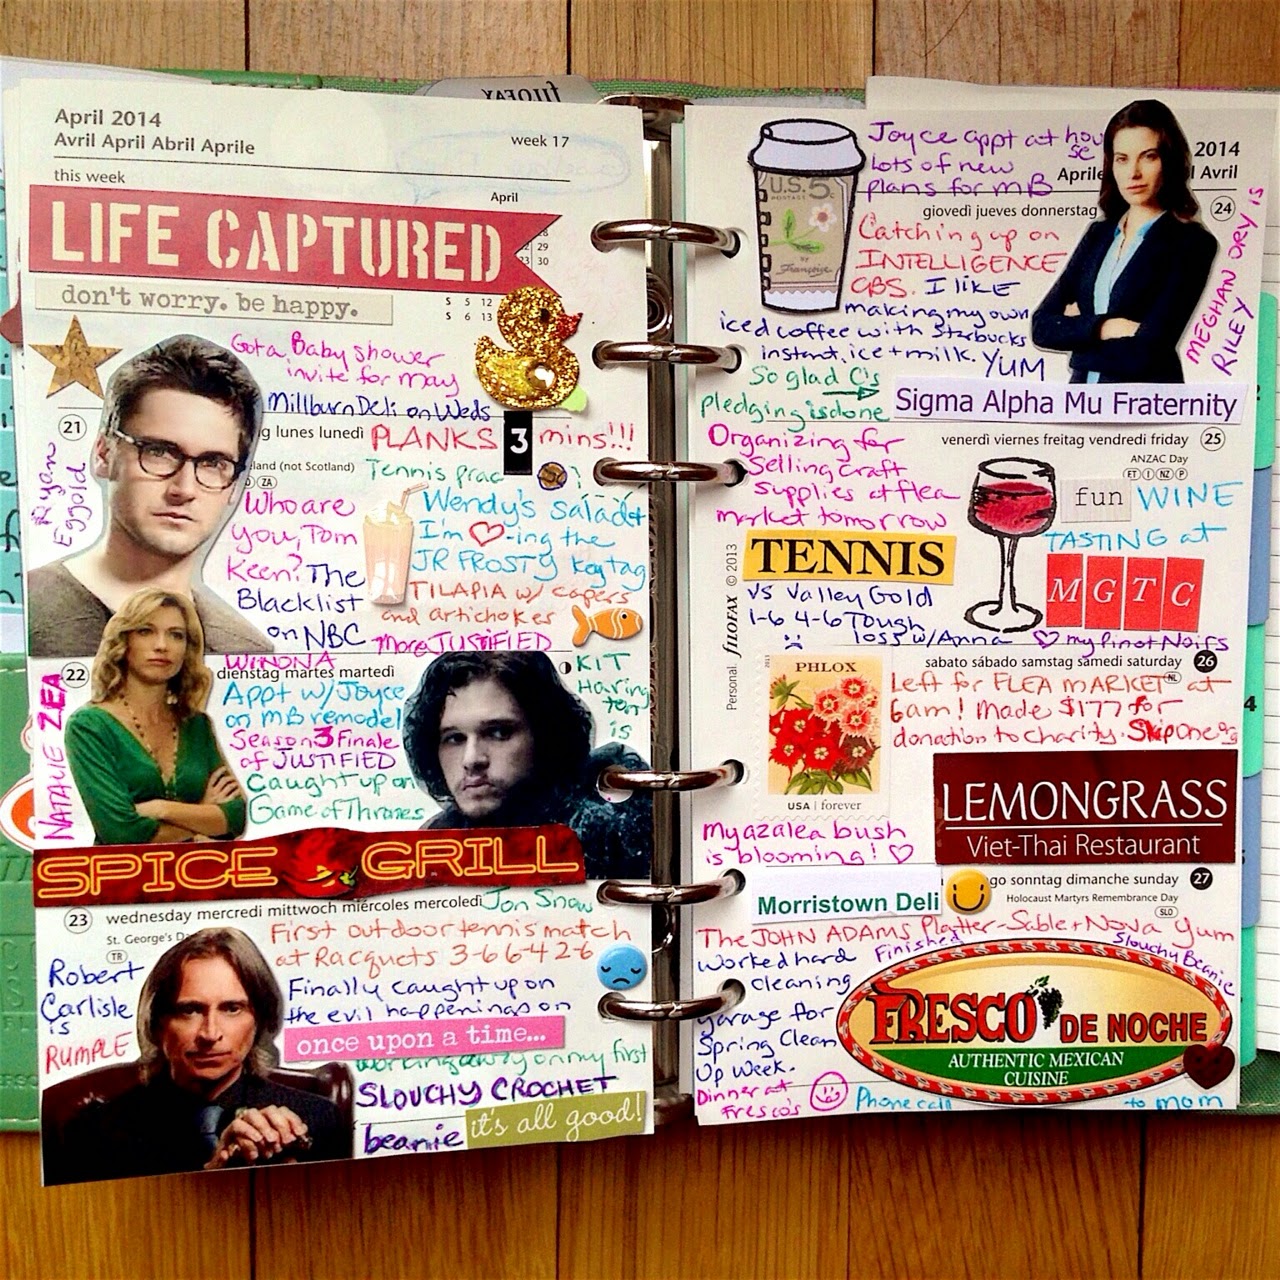 FILOFAX
April 2014
Avril April Abril Aprile
week 17
this week
April
LIFE CAPTURED
29
30
S 5 12
S 6 13
don't worry. be happy.
Got a Baby shower
invite for May
Millburn Deli on Weds
21
g lunes lunedì
PLANKS 3 mins!!!
eland (not Scotland)
ZA
Tennis prac
?
Ryan
Eggold
Who are
you, Tom
Keen? The
Blacklist
on NBC
Wendy's salad +
I'm ♡-ing the
JR FROSTY key tag
TILAPIA w/ capers
and artichokes
More JUSTIFIED
WINONA
22
dienstag martes martedì
NATALIE ZEA
Appt w/ Joyce
on MB remodel
Season 3 Finale
of JUSTIFIED
Caught up on
Game of Thrones
KIT
Haring
ton
is
Jon Snow
SPICE GRILL
23
wednesday mercredi mittwoch miércoles mercoledì
St. George's D
TR
First outdoor tennis match
at Racquets 3-6 6-4 2-6
Robert
Carlisle
is
RUMPLE
Finally caught up on
the evil happenings on
once upon a time...
working away on my first
SLOUCHY CROCHET
beanie
it's all good!
Joyce appt at hou
se
Lots of new
plans for MB
2014
Aprile
l Avril
giovedì jueves donnerstag
24
U.S. 5c
POSTAGE
Françoise
Catching up on
INTELLIGENCE
CBS. I like
making my own
iced coffee with Starbucks
instant, ice + milk. YUM
MEGHAN ORY is
RILEY
So glad C's
pledging is done
Sigma Alpha Mu Fraternity
venerdì viernes freitag vendredi friday
25
ANZAC Day
ET I NZ P
Organizing for
Selling craft
supplies at flea
market tomorrow
fun WINE
TASTING at
MGTC
TENNIS
vs Valley Gold
1-6 4-6 Tough
loss w/ Anna
♡ my Pinot Noirs
Personal filofax © 2013
sabato sábado samstag samedi saturday
26
NL
2011
PHLOX
USA | forever
Left for FLEA MARKET at
6am! Made $177 for
donation to charity.
My azalea bush
is blooming! ♡
LEMONGRASS
Viet-Thai Restaurant
go sonntag dimanche sunday
27
Holocaust Martyrs Remembrance Day
SLO
Morristown Deli
The JOHN ADAMS Platter - Sable + Nova Yum
Finished
Slouchy Beanie
Worked hard
cleaning
garage for
Spring Clean
Up Week.
Dinner at
Fresco's
FRESCO DE NOCHE
AUTHENTIC MEXICAN
CUISINE
Phone call
to mom
4